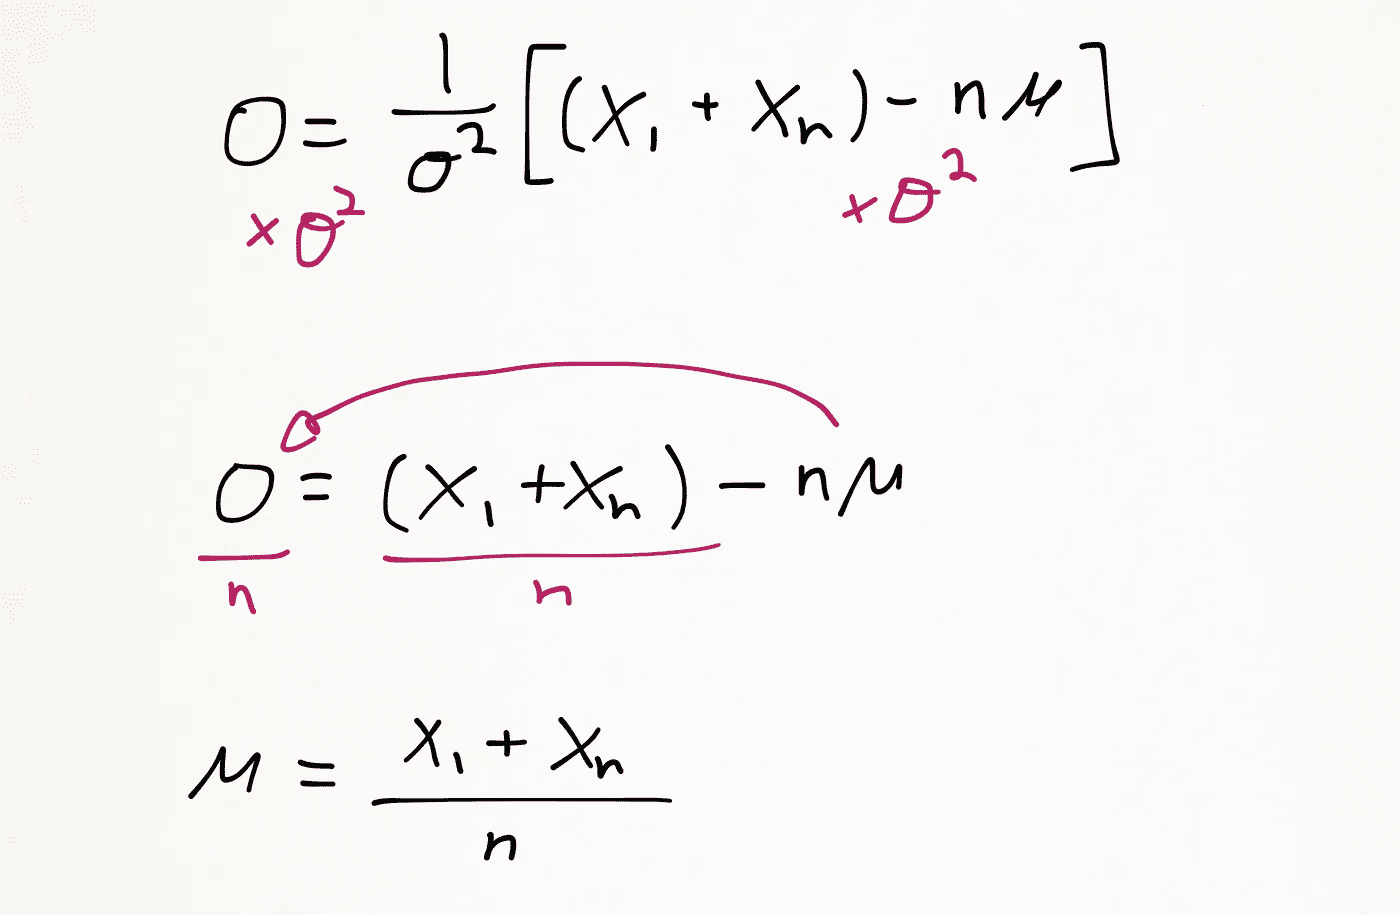 0 = 1/σ² [(x₁ + xₙ) - nμ]
×σ² ×σ²
0 = (x₁ + xₙ) - nμ
n n
μ = (x₁ + xₙ)/n